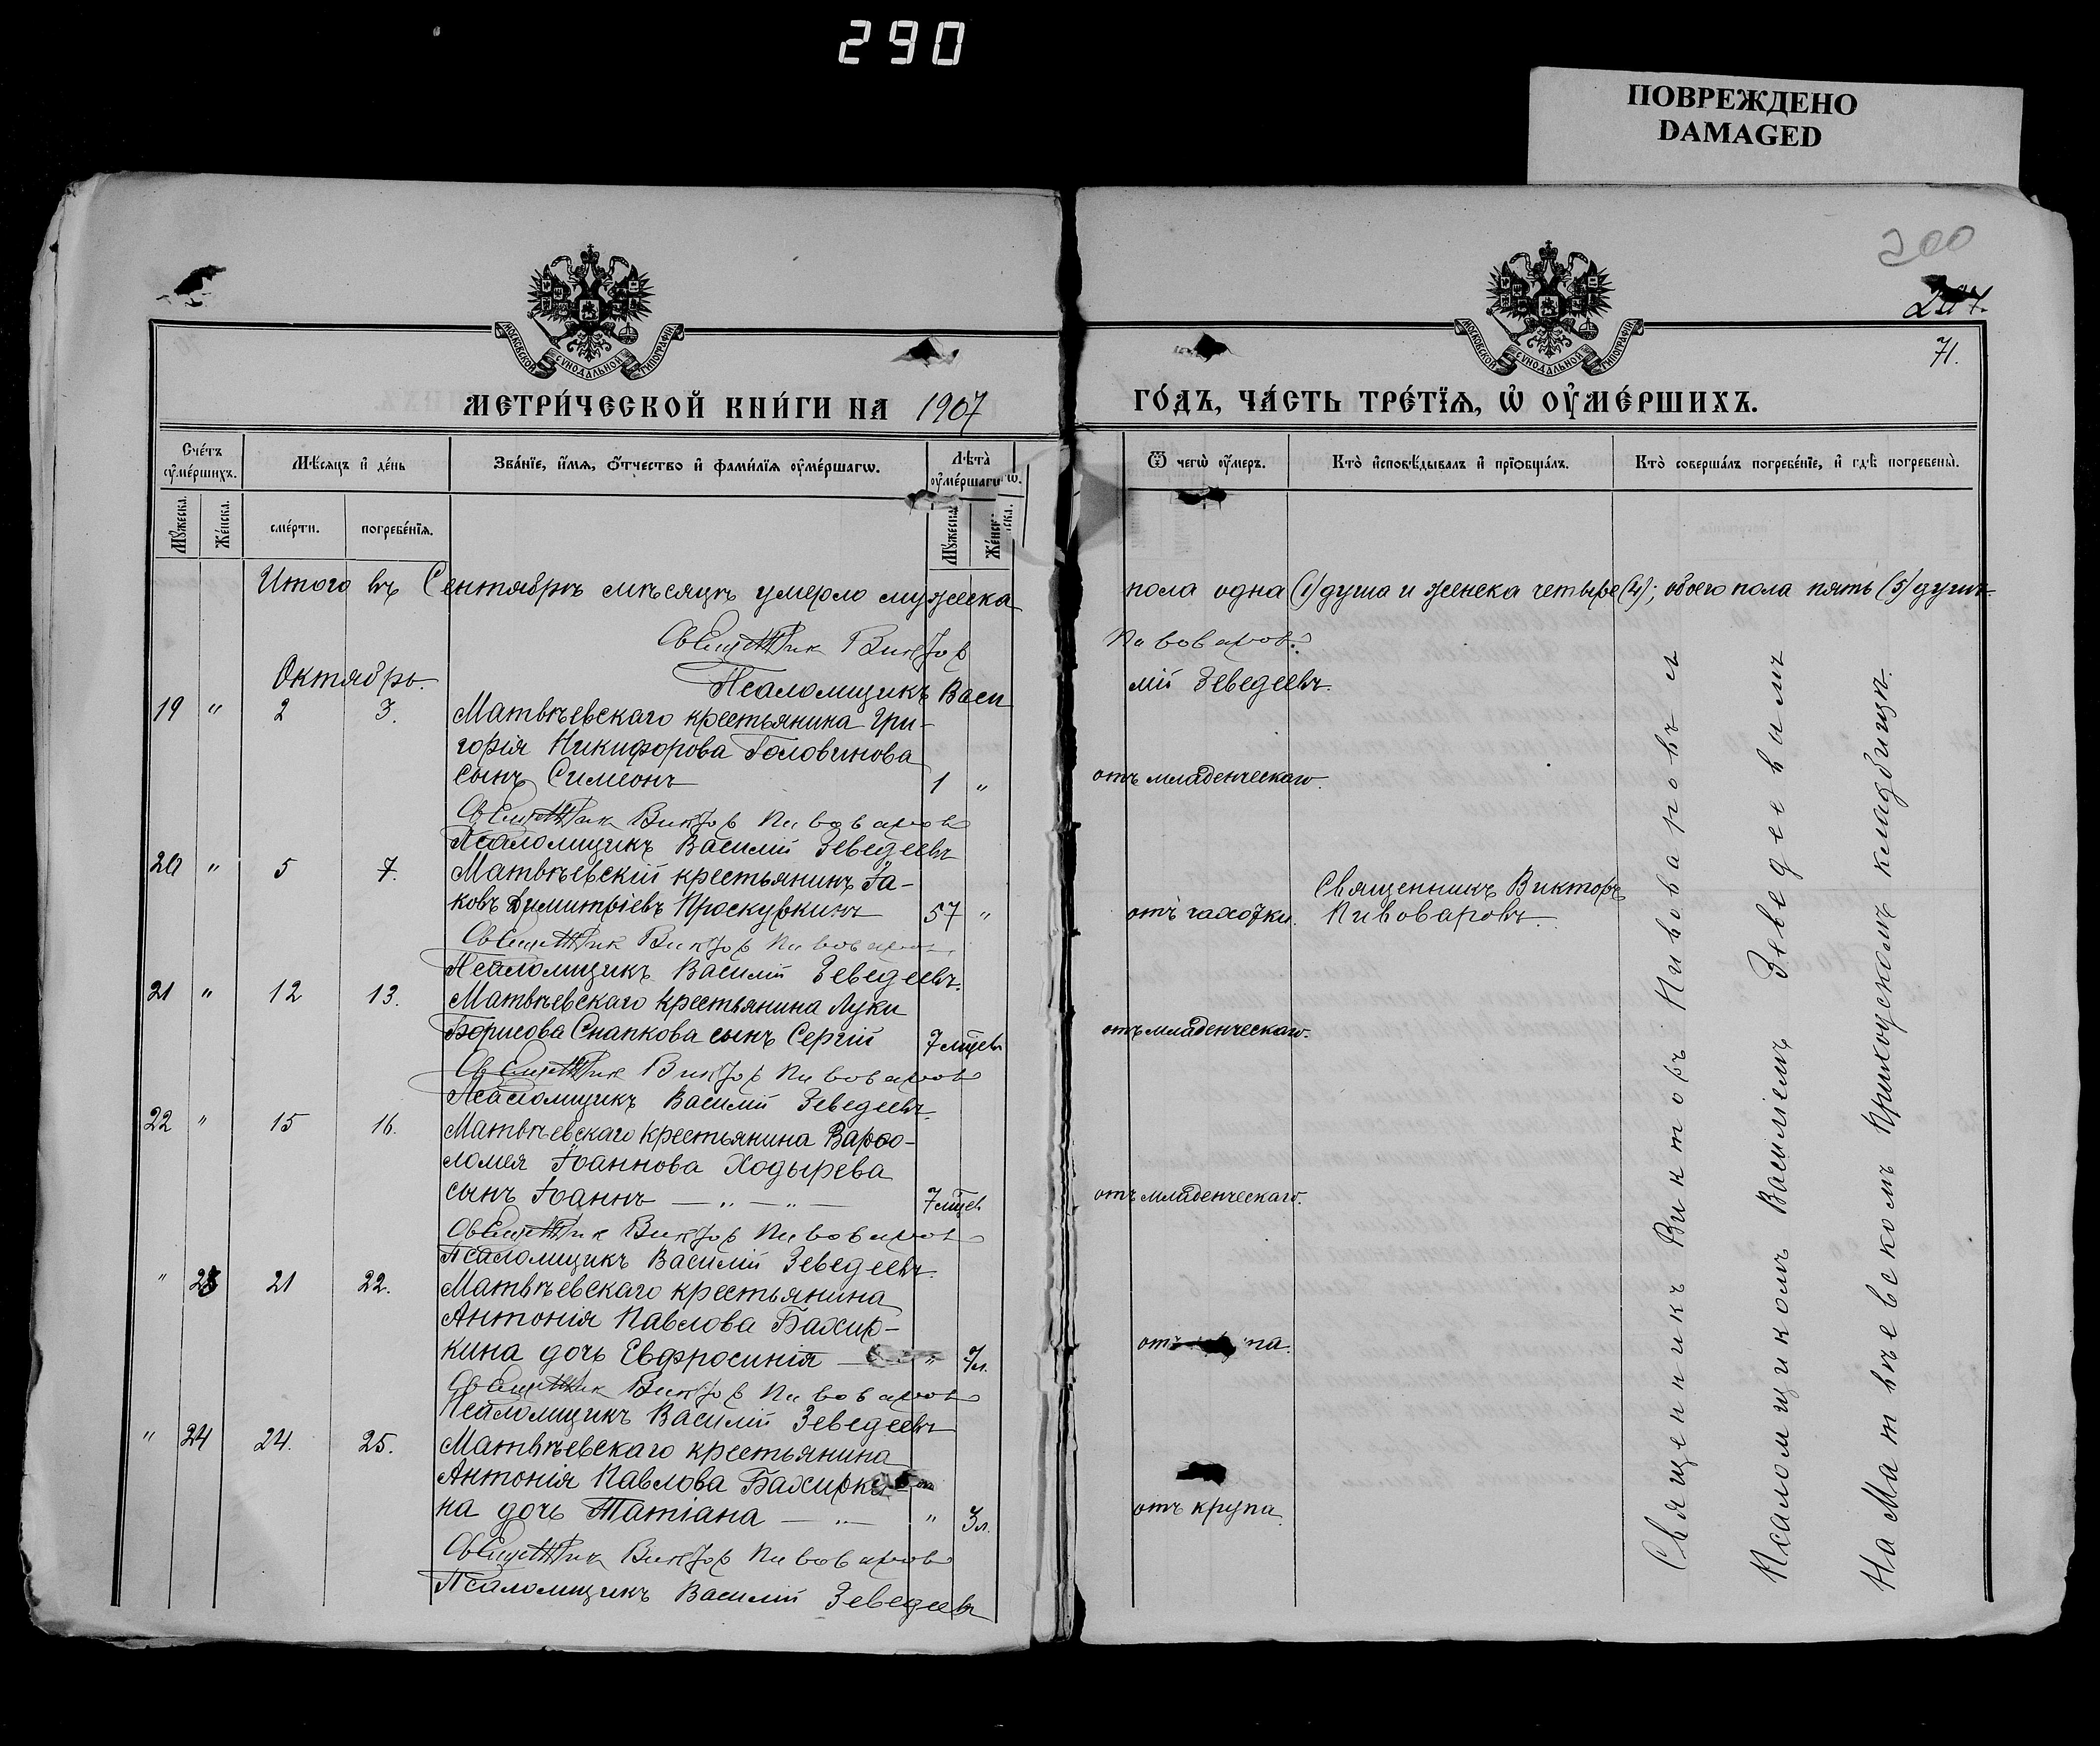 290
ПОВРЕЖДЕНО
DAMAGED
200
71.
МОСКОВСКОЙ СУНОДАЛЬНОЙ ТИПОГРАФІИ
МОСКОВСКОЙ СУНОДАЛЬНОЙ ТИПОГРАФІИ
МЕТРИ́ЧЕСКОЙ КНИ́ГИ НА 1907
ГО́ДЪ, ЧА́СТЬ ТРЕ́ТЇѦ, Ѡ ОУ҆МЕ́РШИХЪ.
Сче́тъ оу҆ме́ршихъ.
Мѣ́сѧцъ и҆ де́нь
Зва́нїе, и҆́мѧ, ѻ҆́тчество и҆ фами́лїѧ оу҆ме́ршагѡ.
Лѣ́та оу҆ме́ршагѡ.
Ѿ чегѡ̀ оу҆́меръ.
Кто̀ и҆сповѣ́дывалъ и҆ прїѡбща́лъ.
Кто̀ соверша́лъ погребе́нїе, и҆ гдѣ̀ погребены̀.
Мꙋ́жеска.
Же́нска.
сме́рти.
погребе́нїѧ.
Мꙋ́жеска.
Же́нска.
Итого въ Сентябрѣ мѣсяцѣ умерло мужеска пола одна (1) душа и женска четыре (4); обоего пола пять (5) душъ.
Священник Виктор Пивоваров.
Октябрь.
Псаломщикъ Василій Зеведеевъ.
19 " 2 3. Матвѣевскаго крестьянина Гри-
горія Никифорова Головинова
сынъ Симеонъ 1 " отъ младенческаго.
Священник Виктор Пивоваров
Псаломщикъ Василій Зеведеевъ
20 " 5 7. Матвѣевскій крестьянинъ Іа-
ковъ Димитріевъ Проскуркинъ 57 " отъ чахотки. Священникъ Викторъ
Пивоваровъ.
Священник Виктор Пивоваров
Псаломщикъ Василій Зеведеевъ.
21 " 12 13. Матвѣевскаго крестьянина Луки
Борисова Снапкова сынъ Сергій 7 мцевъ отъ младенческаго.
Священник Виктор Пивоваров
Псаломщикъ Василій Зеведеевъ.
22 " 15 16. Матвѣевскаго крестьянина Варѳо-
ломея Іоаннова Ходырева
сынъ Іоаннъ — " — " — 7 мцев отъ младенческаго.
Священник Виктор Пивоваров
Псаломщикъ Василій Зеведеевъ.
" 23 21 22. Матвѣевскаго крестьянина
Антонія Павлова Бахир-
кина дочь Евфросинія — " 7 л. отъ па.
Священник Виктор Пивоваров
Псаломщикъ Василій Зеведеевъ
" 24 24. 25. Матвѣевскаго крестьянина
Антонія Павлова Бахирки-
на дочь Татіана — " — " 3 л. отъ крупа.
Священник Виктор Пивоваров
Псаломщикъ Василій Зеведеевъ
Священникъ Викторъ Пивоваровъ и
Псаломщикомъ Василіемъ Зеведеевымъ
На Матвѣевскомъ приходскомъ кладбищѣ.